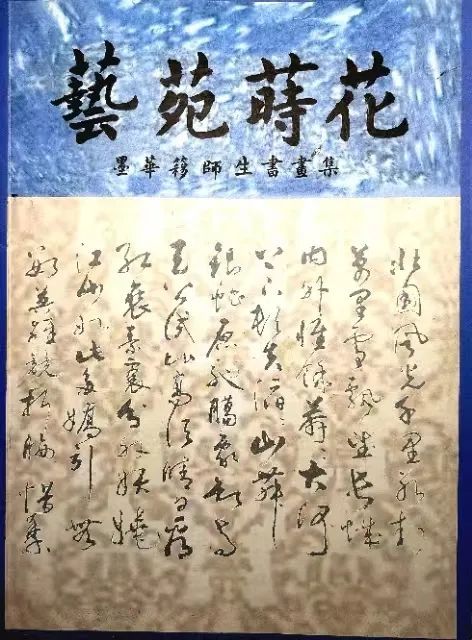 藝苑蒔花
墨華移師生書畫集
北國風光千里冰封
萬里雪飄望長城
內外惟餘莽々大河
上下頓失滔々山舞
銀蛇原馳臘象欲與
天公試比高須晴日看
紅裝素裹分外妖嬈
江山如此多嬌引無
數英雄競折腰惜秦